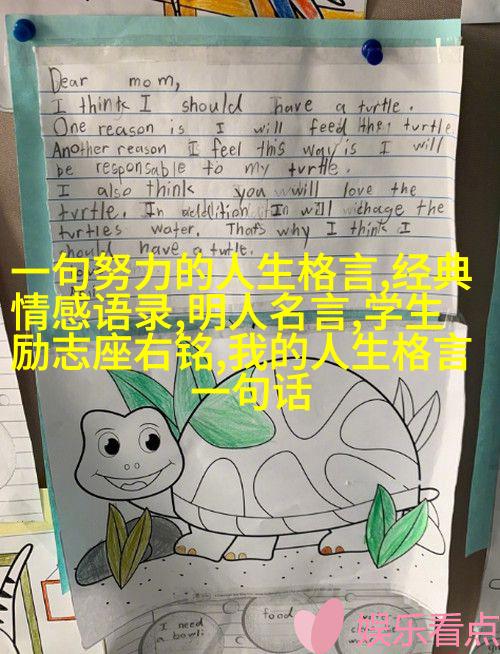 Dear mom,
I think I should have a turtle.
One reason is I will feed the turtle.
Another reason I feel this way is I will
be responsable to my turtle.
I also think you will love the
turtle. In addition I will chage the
turtles water. That's why I think I
should have a turtle.
一句努力的人生格言,经典
情感语录,明人名言,学生
励志座右铭,我的人生格言
一句话
I need
a bowl
food
娱乐看点